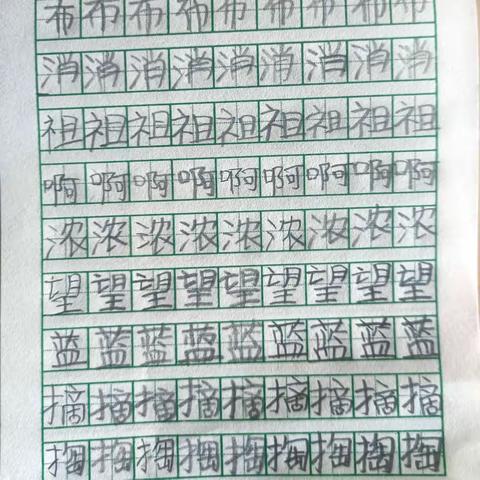 布布布布布布布布布
消消消消消消消消消
祖祖祖祖祖祖祖祖祖
啊啊啊啊啊啊啊啊啊
浓浓浓浓浓浓浓浓浓
望望望望望望望望望
蓝蓝蓝蓝蓝蓝蓝蓝蓝
摘摘摘摘摘摘摘摘摘
掏掏掏掏掏掏掏掏掏